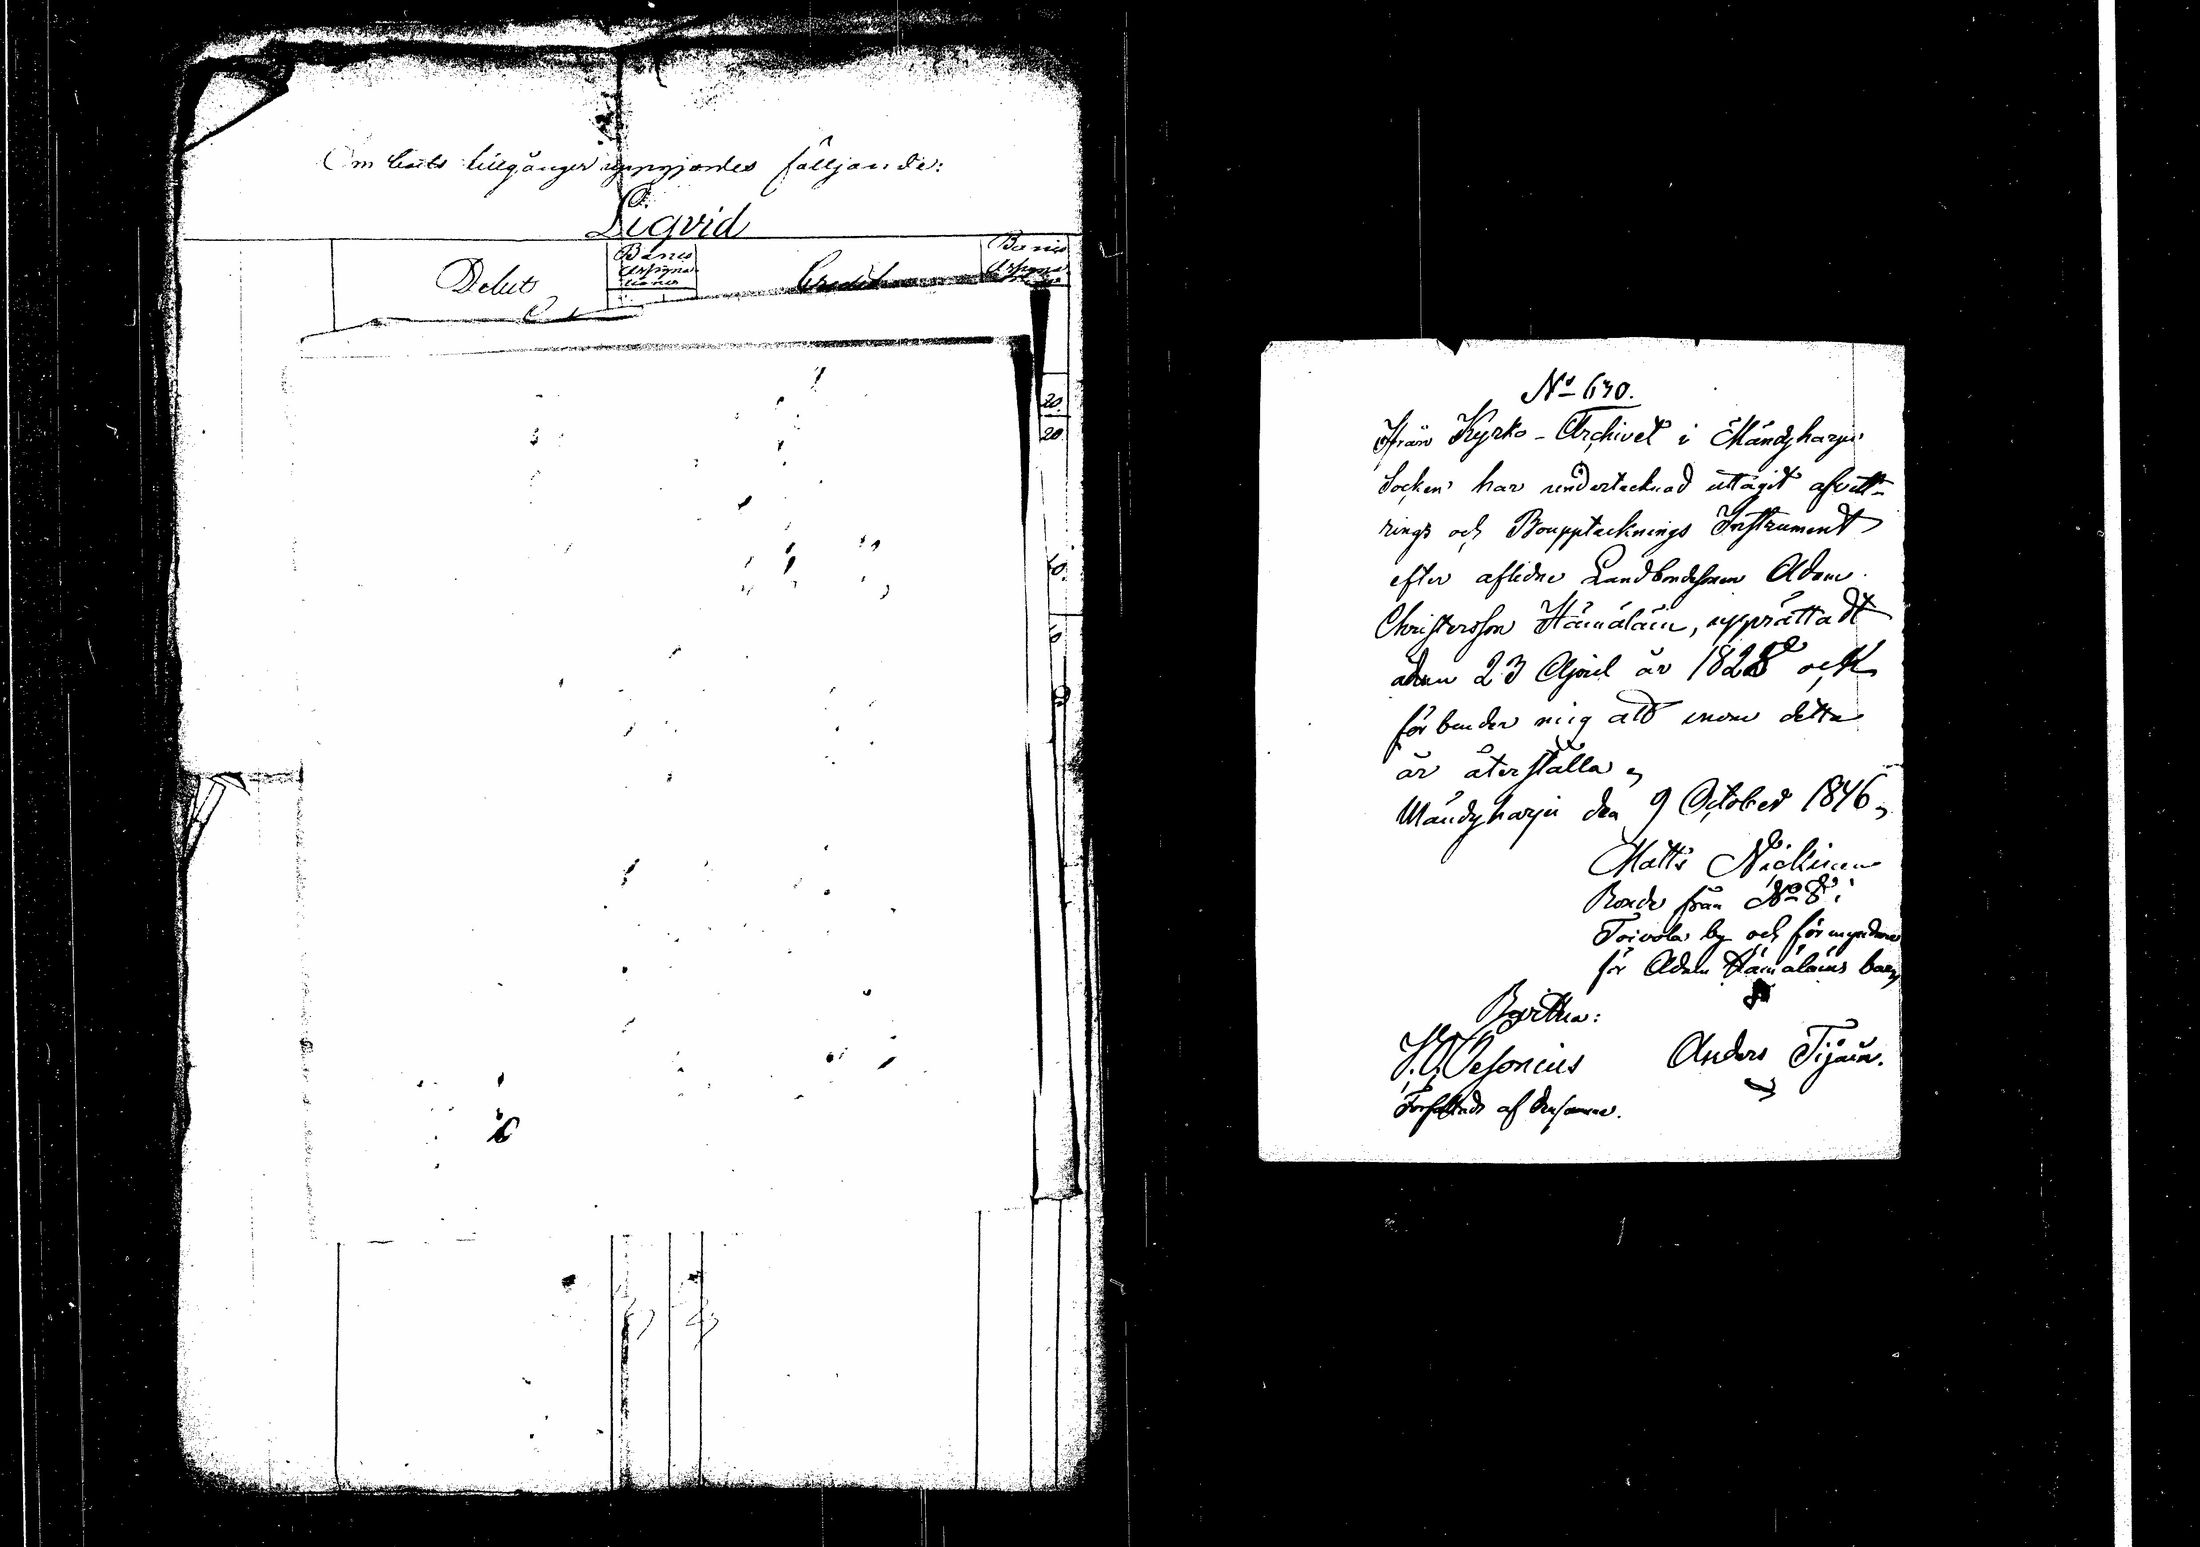 Om boets tillgånger uppgjordes fölljande:
Liqvid
Debet
Banco
Assigna
tioner
Credit
Banco
Assigna
20.
20.
No 630.
Från Kyrko-Archivet i Mändyharju
Socken har undertecknad uttagit afvitt-
rings och Boupptecknings Instrument
efter aflidne Landbondesonen Adam
Christersson Hämäläin, upprättadt
den 23 April år 1828 och
förbinder mig att inom detta
år återställa
Mändyharju den 9 October 1846,
Matts
Bonde från No 8 i
Toivola by och förmyndare
för Adam Hämäläins barn
Bevittna:
Anders Tijäin.
Författadt af densamme.